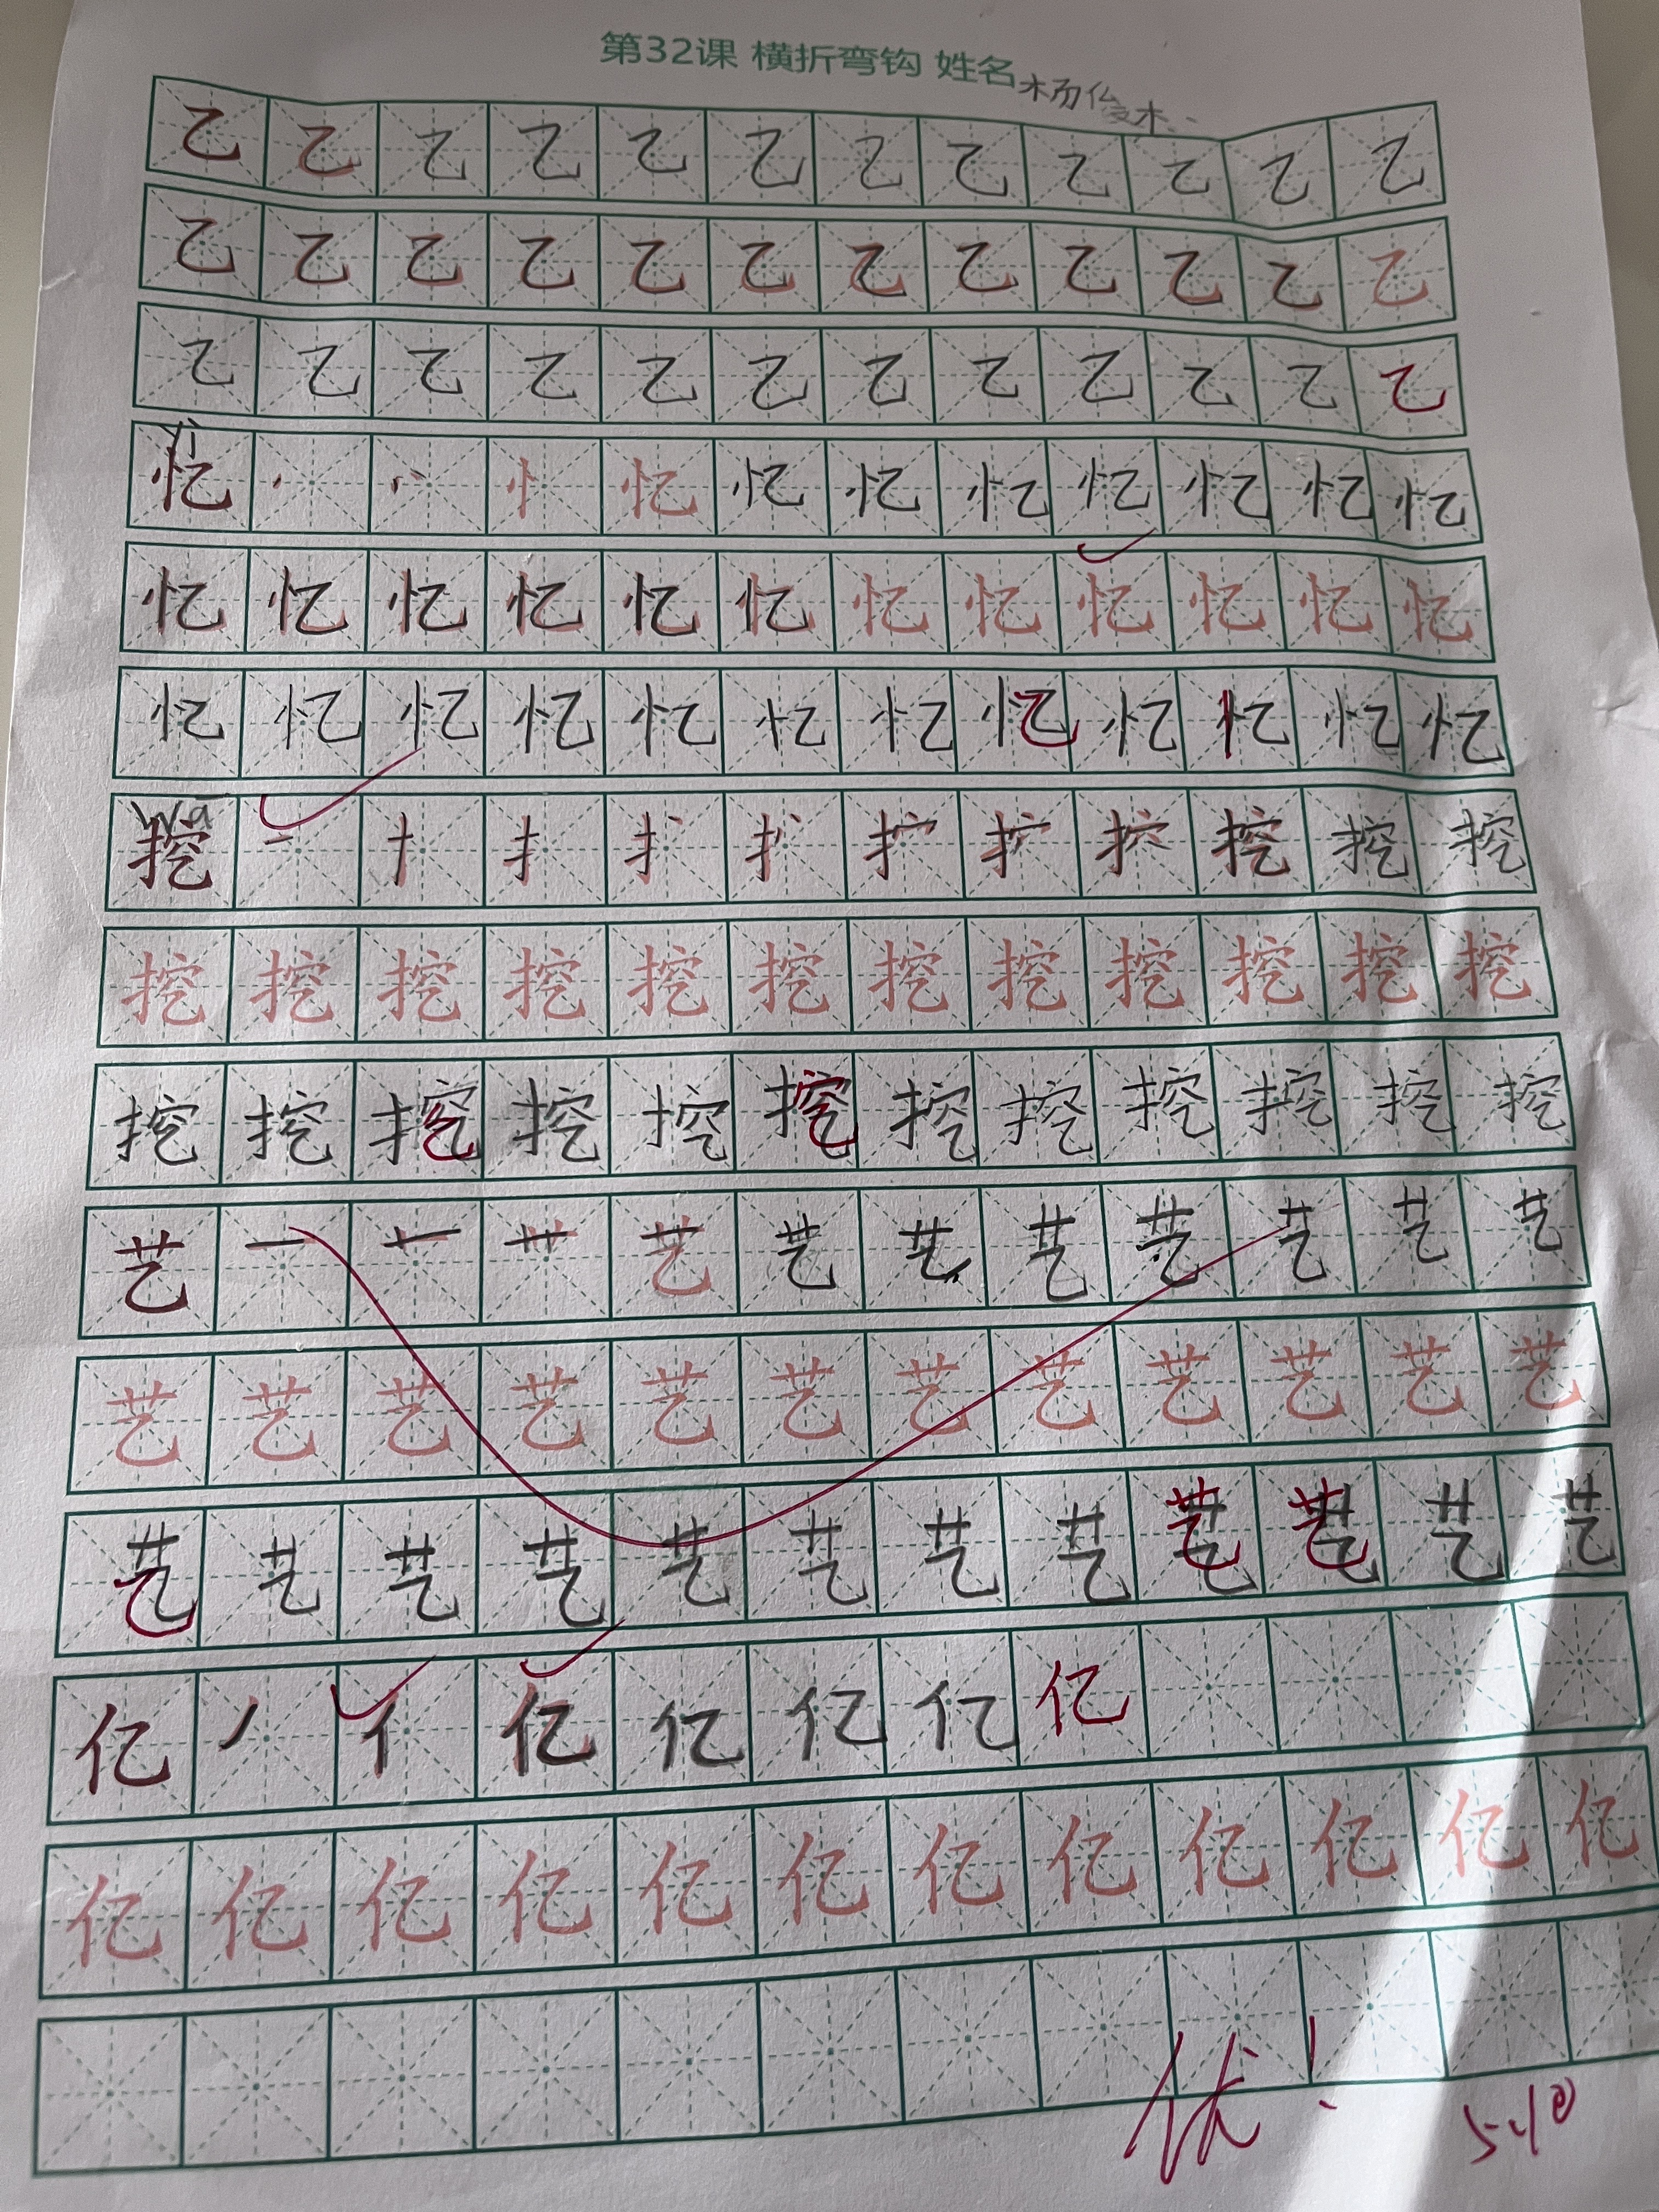 第32课 横折弯钩 姓名 杨俊杰
乙 乙 乙 乙 乙 乙 乙 乙 乙 乙 乙 乙
乙 乙 乙 乙 乙 乙 乙 乙 乙 乙 乙 乙
乙 乙 乙 乙 乙 乙 乙 乙 乙 乙 乙 乙
yì
忆 忄 忆 忆 忆 忆 忆 忆 忆 忆
忆 忆 忆 忆 忆 忆 忆 忆 忆 忆 忆 忆
忆 忆 忆 忆 忆 忆 忆 忆 忆 忆 忆 忆
wā
挖 一 扌 挖 挖 挖
挖 挖 挖 挖 挖 挖 挖 挖 挖 挖 挖 挖
挖 挖 挖 挖 挖 挖 挖 挖 挖 挖 挖 挖
艺 一 艹 艺 艺 艺 艺 艺 艺 艺 艺
艺 艺 艺 艺 艺 艺 艺 艺 艺 艺 艺 艺
艺 艺 艺 艺 艺 艺 艺 艺 艺 艺 艺 艺
亿 丿 亻 亿 亿 亿 亿 亿
亿 亿 亿 亿 亿 亿 亿 亿 亿 亿 亿 亿
优!
5.10